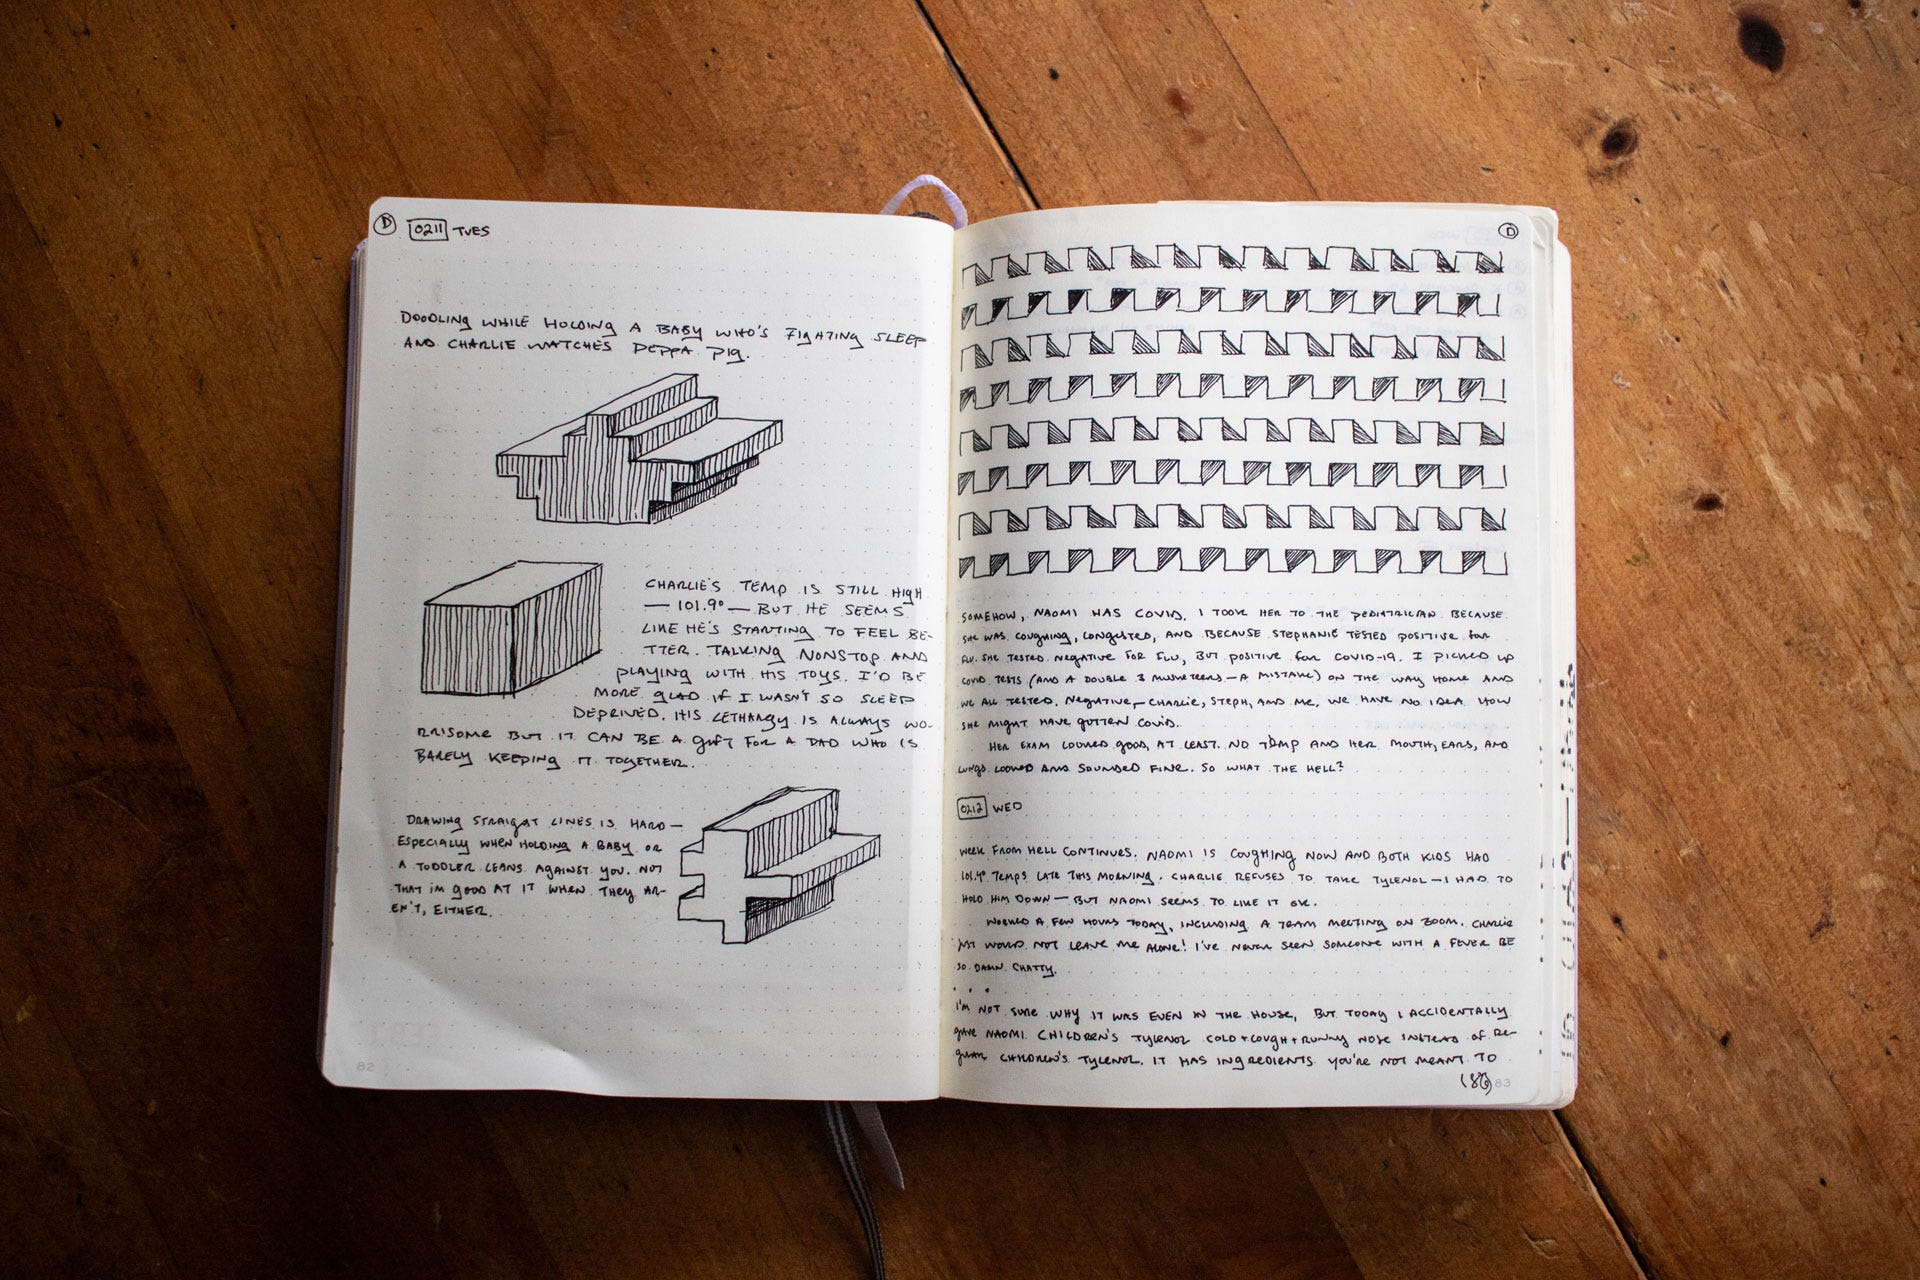 D 0211 TUES
DOODLING WHILE HOLDING A BABY WHO'S FIGHTING SLEEP
AND CHARLIE WATCHES PEPPA PIG.
CHARLIE'S TEMP IS STILL HIGH
— 101.9° — BUT HE SEEMS
LIKE HE'S STARTING TO FEEL BE-
TTER. TALKING NONSTOP AND
PLAYING WITH HIS TOYS. I'D BE
MORE GLAD IF I WASN'T SO SLEEP
DEPRIVED. HIS LETHARGY IS ALWAYS WO-
RRISOME BUT IT CAN BE A GIFT FOR A DAD WHO IS
BARELY KEEPING IT TOGETHER.
DRAWING STRAIGHT LINES IS HARD—
ESPECIALLY WHEN HOLDING A BABY OR
A TODDLER LEANS AGAINST YOU. NOT
THAT I'M GOOD AT IT WHEN THEY AR-
EN'T, EITHER.
82
D
SOMEHOW, NAOMI HAS COVID. I TOOK HER TO THE PEDIATRICIAN BECAUSE
SHE WAS COUGHING, CONGESTED, AND BECAUSE STEPHANIE TESTED POSITIVE FOR
FLU. SHE TESTED NEGATIVE FOR FLU, BUT POSITIVE FOR COVID-19. I PICKED UP
COVID TESTS (AND A DOUBLE 3 MUSKETEERS — A MISTAKE) ON THE WAY HOME AND
WE ALL TESTED. NEGATIVE — CHARLIE, STEPH, AND ME. WE HAVE NO IDEA HOW
SHE MIGHT HAVE GOTTEN COVID.
HER EXAM LOOKED GOOD, AT LEAST. NO TEMP AND HER MOUTH, EARS, AND
LUNGS LOOKED AND SOUNDED FINE. SO WHAT THE HELL?
0212 WED
WEEK FROM HELL CONTINUES. NAOMI IS COUGHING NOW AND BOTH KIDS HAD
101.4° TEMPS LATE THIS MORNING. CHARLIE REFUSES TO TAKE TYLENOL — I HAD TO
HOLD HIM DOWN — BUT NAOMI SEEMS TO LIKE IT OK.
WORKED A FEW HOURS TODAY, INCLUDING A TEAM MEETING ON ZOOM. CHARLIE
JUST WOULD NOT LEAVE ME ALONE! I'VE NEVER SEEN SOMEONE WITH A FEVER BE
SO DAMN CHATTY.
...
I'M NOT SURE WHY IT WAS EVEN IN THE HOUSE, BUT TODAY I ACCIDENTALLY
GAVE NAOMI CHILDREN'S TYLENOL COLD + COUGH + RUNNY NOSE INSTEAD OF RE-
GULAR CHILDREN'S TYLENOL. IT HAS INGREDIENTS YOU'RE NOT MEANT TO
83